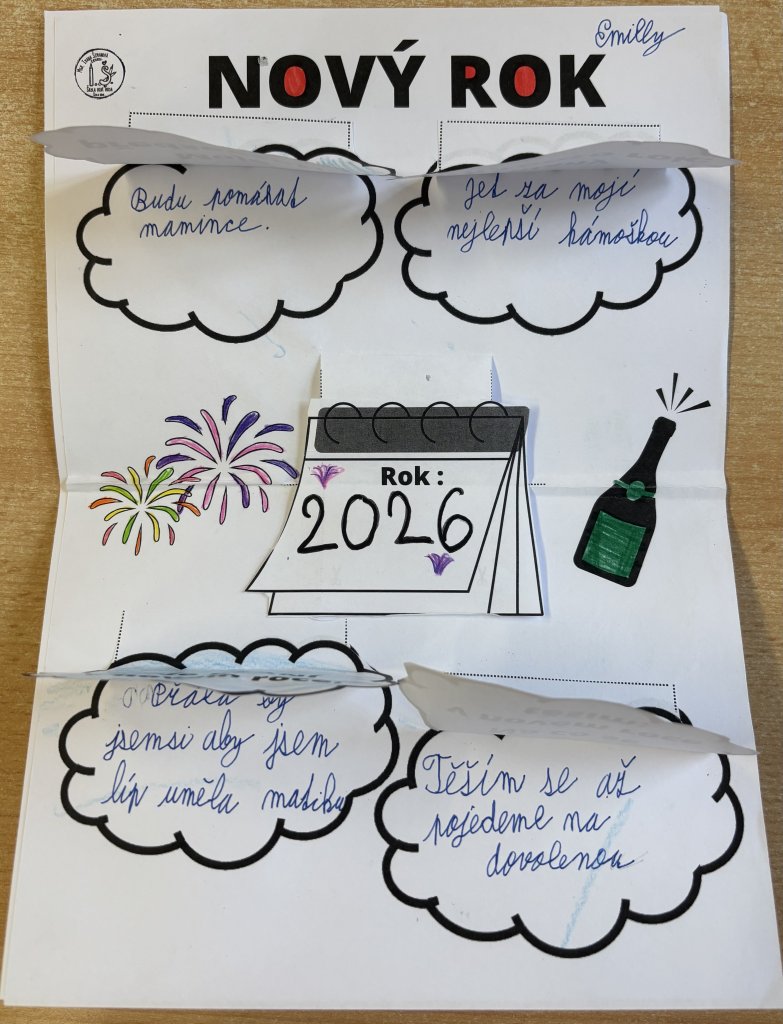 Emilly
NOVÝ ROK
Budu pomáhat
mamince.
jet za mojí
nejlepší kámoškou
Rok :
2026
Přála by
jsemsi aby jsem
líp uměla matiku
Těším se až
pojedeme na
dovolenou